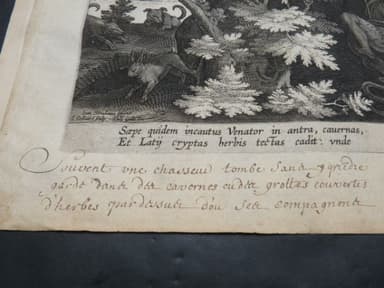 Sæpe quidem incautus Venator in antra, cavernas,
Et Laty cryptas herbis tectus cadit: vnde
Souvent vne chasseur tombe sans prendre
garde dans des cavernes ou des grottes couvertes
d'herbes pardessus d'ou ses compagnons